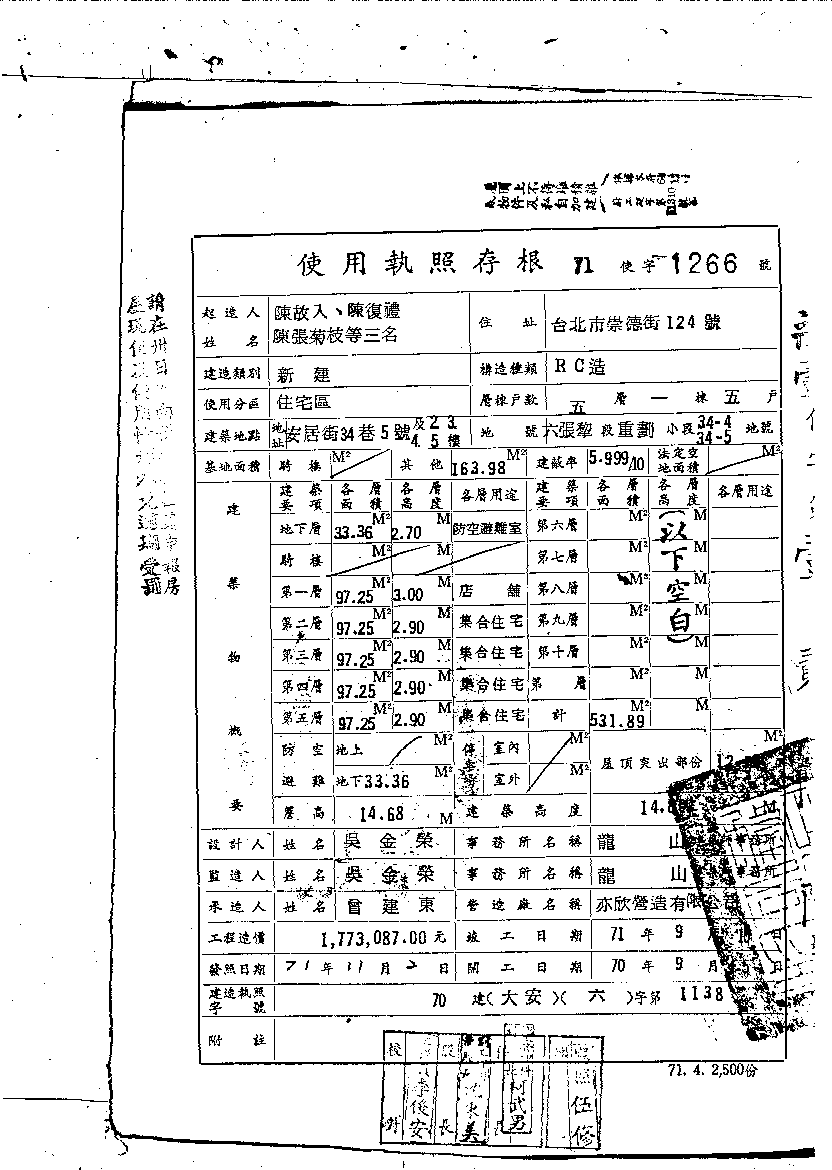 使用執照存根 71 使字 1266 號
起造人姓名 陳故入、陳復禮 陳張菊枝等三名 住址 台北市崇德街124號
建造類別 新建 構造種類 RC造
使用分區 住宅區 層棟戶數 五層一棟五戶
建築地點 地址 安居街34巷5號及2 3. 4. 5樓 地號 六張犂段重劃小段34-4 34-5地號
基地面積 騎樓 M² 其他 163.98 M² 建蔽率 5.999/10 法定空地面積 M²
建築物概要 建築要項 各層面積 各層高度 各層用途 建築要項 各層面積 各層高度 各層用途
地下層 33.36 M² 2.70 M 防空避難室 第六層 M² M
騎樓 M² M 第七層 M² M
第一層 97.25 M² 3.00 M 店舖 第八層 M² M
第二層 97.25 M² 2.90 M 集合住宅 第九層 M² M
第三層 97.25 M² 2.90 M 集合住宅 第十層 M² M
第四層 97.25 M² 2.90 M 集合住宅 第 層 M² M
第五層 97.25 M² 2.90 M 集合住宅 計 531.89 M² M
(以下空白)
防空避難 地上 M² 停車場 室內 M² 屋頂突出部份 12. M²
地下33.36 M² 室外 M²
簷高 14.68 M 建築高度 14. M
設計人 姓名 吳金榮 事務所名稱 龍山 事務所
監造人 姓名 吳金榮 事務所名稱 龍山 事務所
承造人 姓名 曾建東 營造廠名稱 亦欣營造有限公司
工程造價 1,773,087.00元 竣工日期 71年9月 日
發照日期 71年11月2日 開工日期 70年9月 日
建造執照字號 70建(大安)(六)字第1138
附註
71. 4. 2,500份
校對 李俊安 股長 沈東美 柯武男 伍修